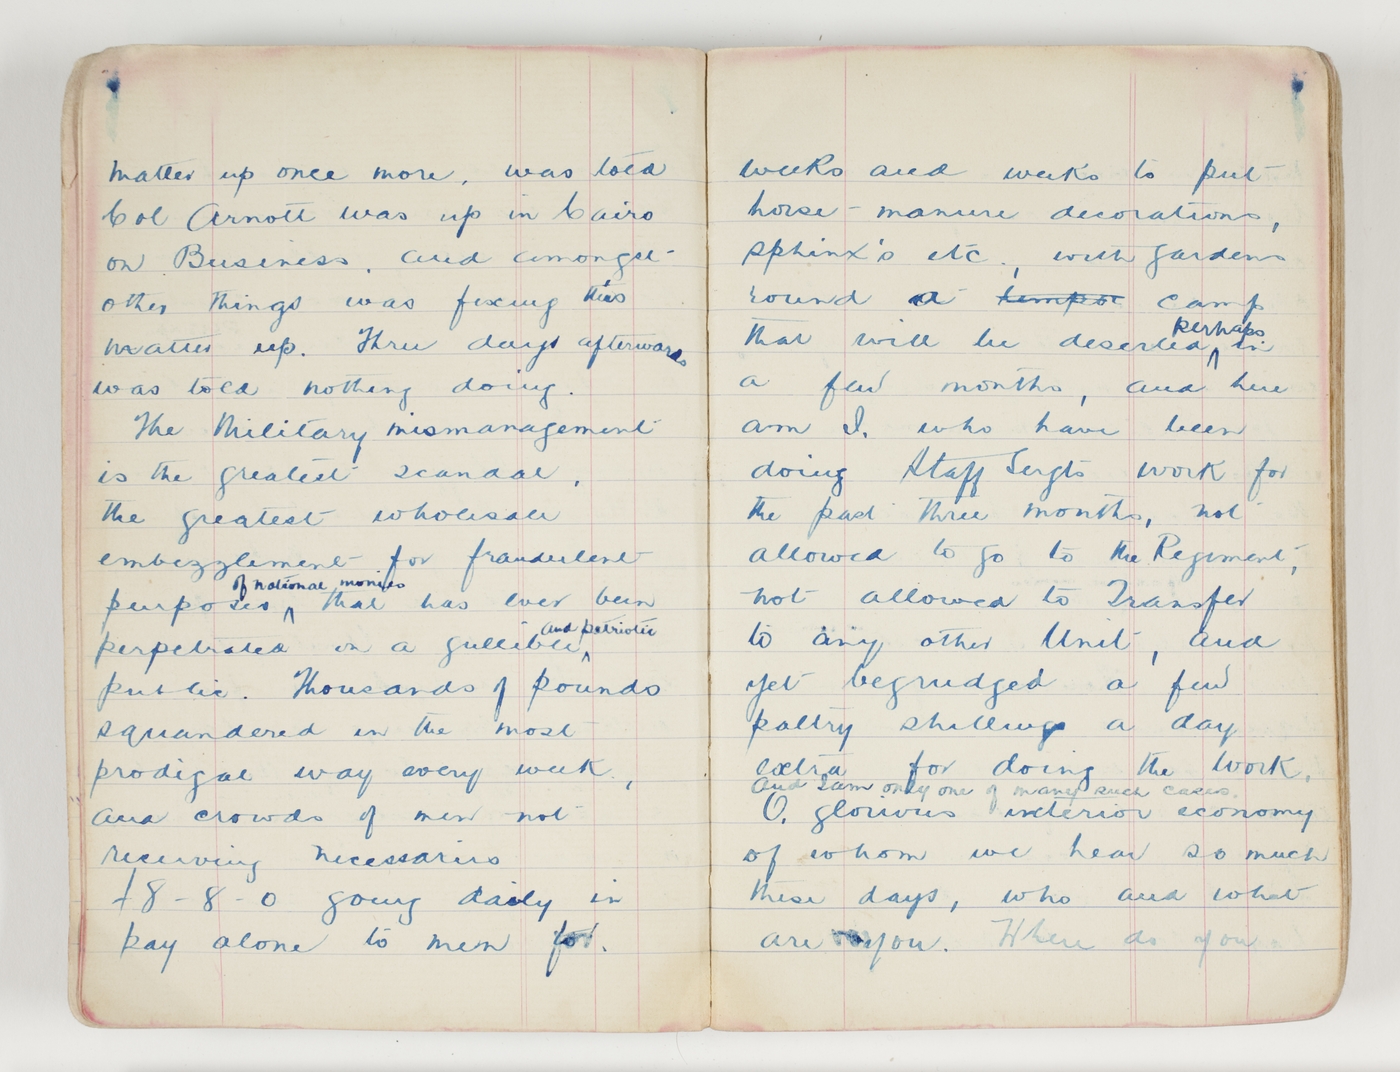 matter up once more, was told
Col Arnott was up in Cairo
on Business, and amongst
other things was fixing this
matter up. Three days afterwards
was told nothing doing.
The Military mismanagement
is the greatest scandal,
the greatest wholesale
embezzlement for fraudulent
of national monies
purposes ^ that has ever been
and patriotic
perpetrated on a gullible ^
public. Thousands of pounds
squandered in the most
prodigal way every week,
and crowds of men not
receiving necessaries
£8-8-0 going daily in
pay alone to men for.
weeks and weeks to put
horse-manure decorations,
sphinx's etc., with gardens
'round a tempor camp
perhaps
that will be deserted, ^ in
a few months, and here
am I. who have been
doing Staff Sergts work for
the past three months, not
allowed to go to the Regiment,
not allowed to Transfer
to any other Unit, and
yet begrudged a few
paltry shillings a day
extra for doing the work.
and I am only one of many such cases.
O, glorious interior economy
of whom we hear so much
these days, who and what
are you. Where do you